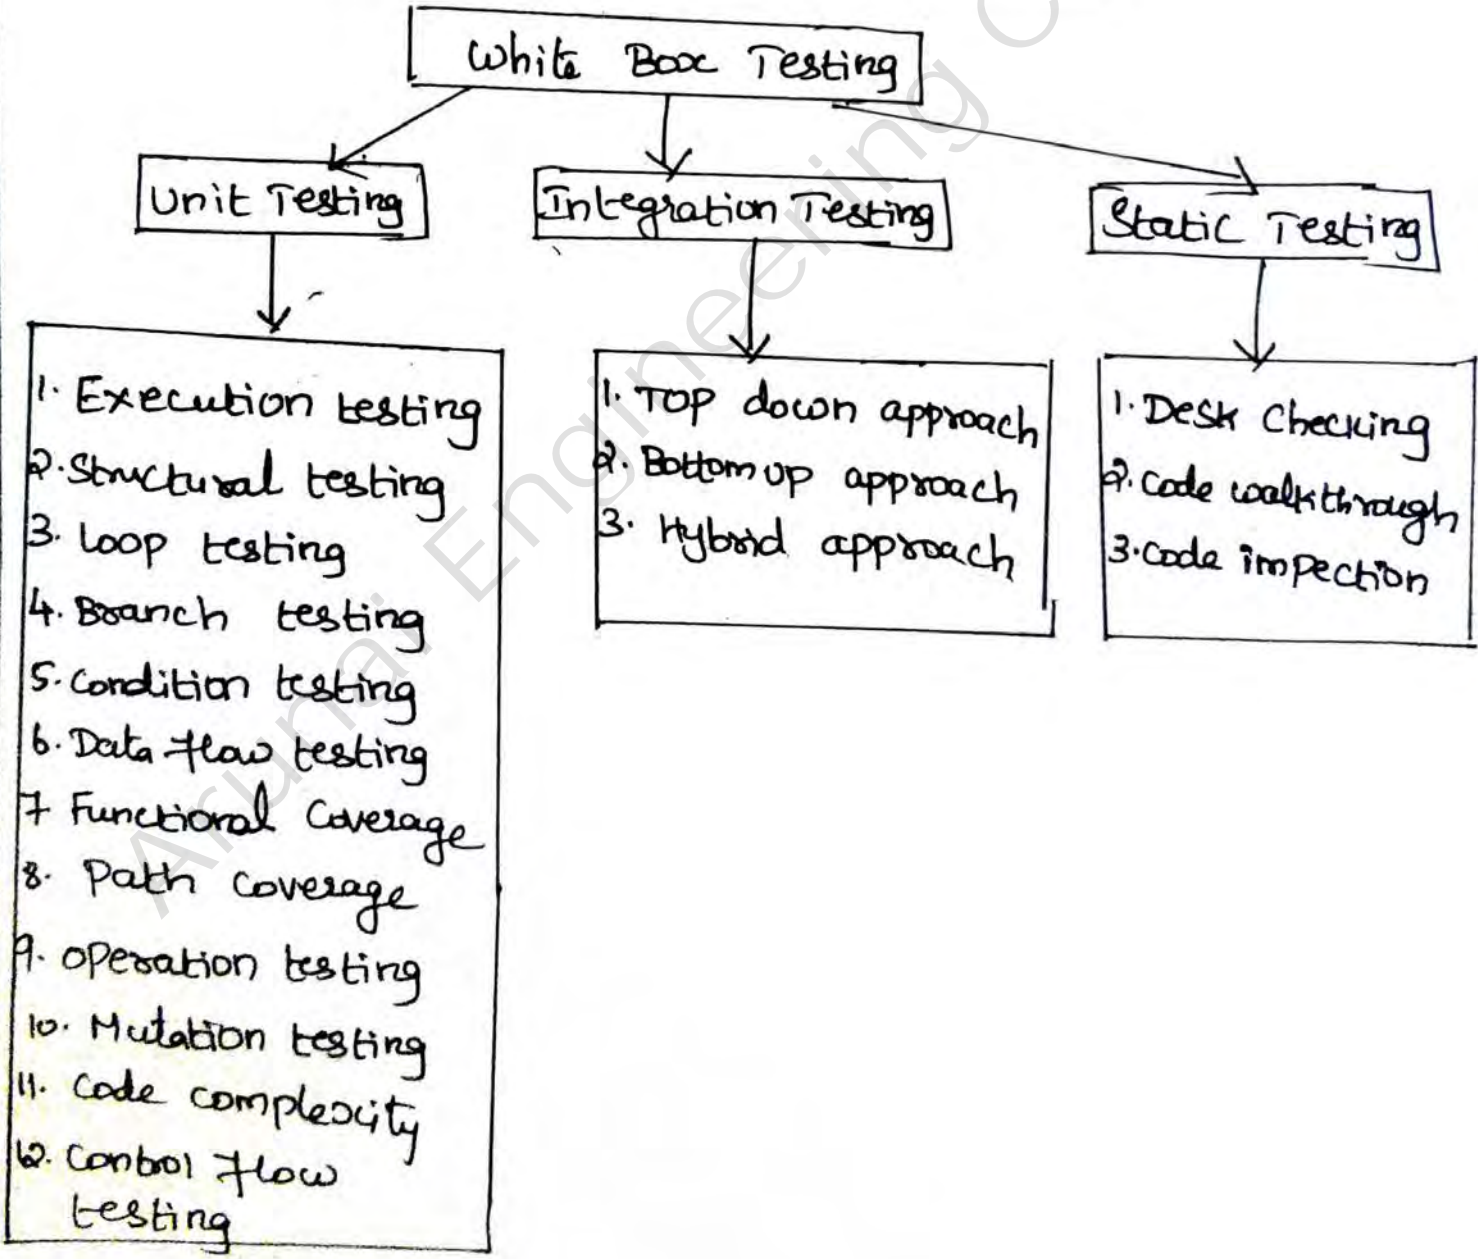 White Box Testing
Unit Testing
Integration Testing
Static Testing
1. Execution testing
2. Structural testing
3. Loop testing
4. Branch testing
5. Condition testing
6. Data flow testing
7 Functional Coverage
8. Path coverage
9. operation testing
10. Mutation testing
11. Code complexity
12. Control flow
testing
1. TOP down approach
2. Bottom up approach
3. Hybrid approach
1. Desk Checking
2. Code walkthrough
3. Code impection
Arunai Engineering C